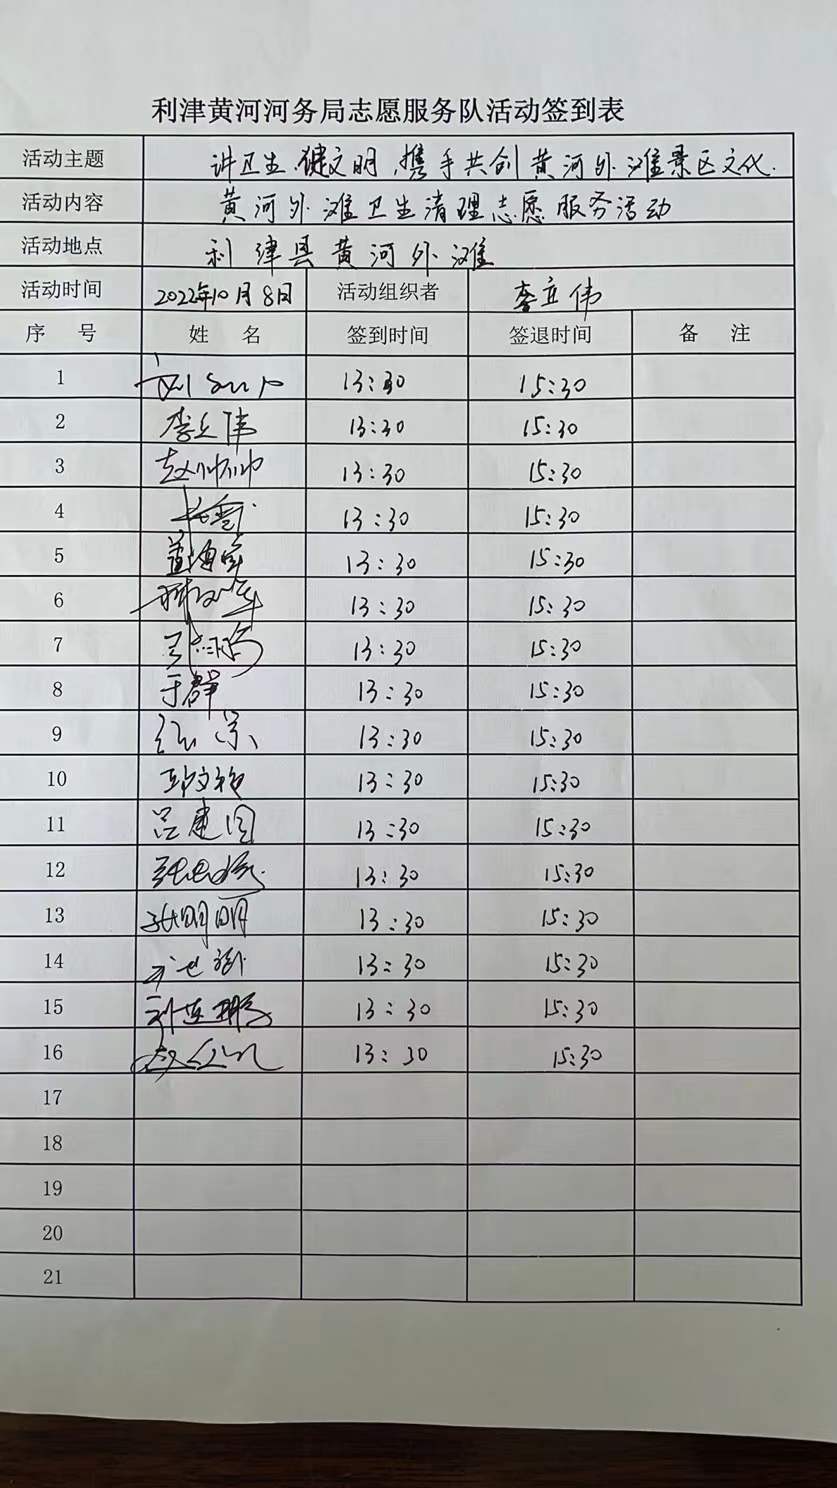 利津黄河河务局志愿服务队活动签到表
活动主题 讲卫生、健文明、携手共创黄河外滩景区文化.
活动内容 黄河外滩卫生清理志愿服务活动
活动地点 利津县黄河外滩
活动时间 2022年10月8日 活动组织者 李立伟
序 号 姓 名 签到时间 签退时间 备 注
1 13:30 15:30
2 李立伟 13:30 15:30
3 赵帅帅 13:30 15:30
4 13:30 15:30
5 盖海军 13:30 15:30
6 13:30 15:30
7 13:30 15:30
8 于群 13:30 15:30
9 13:30 15:30
10 13:30 15:30
11 吕建国 13:30 15:30
12 13:30 15:30
13 张明明 13:30 15:30
14 13:30 15:30
15 13:30 15:30
16 13:30 15:30
17
18
19
20
21